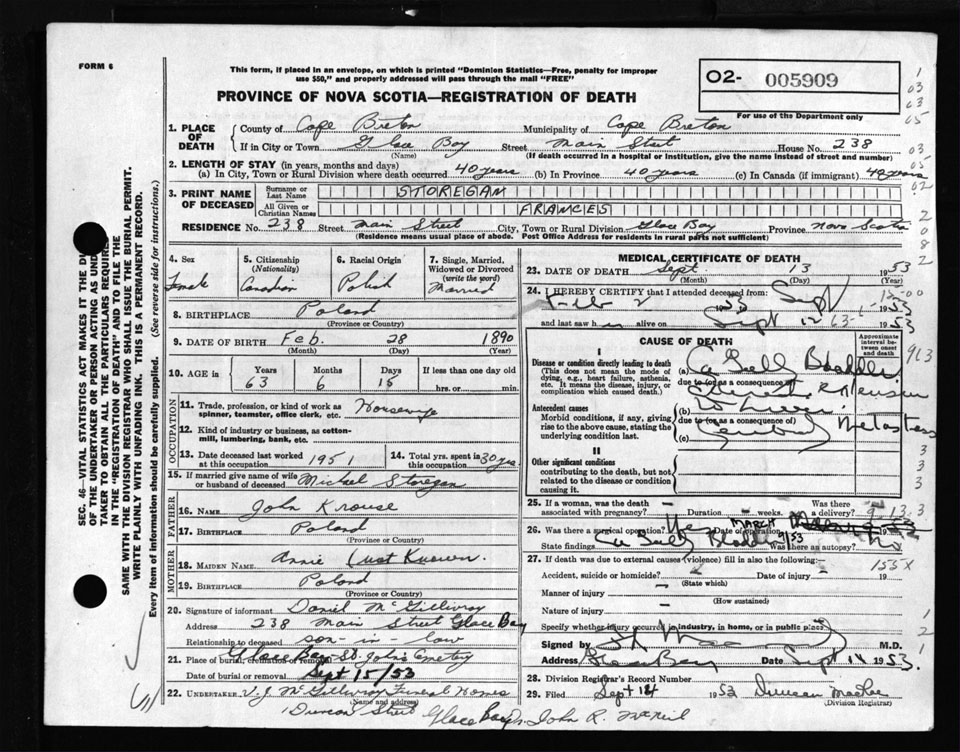 FORM 6
This form, if placed in an envelope, on which is printed "Dominion Statistics—Free, penalty for improper
use $50," and properly addressed will pass through the mail "FREE"
PROVINCE OF NOVA SCOTIA—REGISTRATION OF DEATH
O2- 005909
For use of the Department only
SEC. 46—VITAL STATISTICS ACT MAKES IT THE
OF THE UNDERTAKER OR PERSON ACTING AS
TAKER TO OBTAIN ALL THE PARTICULARS
IN THE "REGISTRATION OF DEATH" AND TO FILE THE
SAME WITH THE DIVISION REGISTRAR WHO SHALL ISSUE THE BURIAL PERMIT.
WRITE PLAINLY WITH UNFADING INK. THIS IS A PERMANENT RECORD.
Every item of information should be carefully supplied. (See reverse side for instructions.)
1. PLACE OF DEATH
County of Cape Breton Municipality of Cape Breton
If in City or Town Glace Bay Street Main Street House No. 238
(Name) (If death occurred in a hospital or institution, give the name instead of street and number)
2. LENGTH OF STAY (in years, months and days)
(a) In City, Town or Rural Division where death occurred 40 years (b) In Province 40 years (c) In Canada (if immigrant) 40 years
3. PRINT NAME OF DECEASED
Surname or Last Name STOREGAM
All Given or Christian Names FRANCES
RESIDENCE No. 238 Street Main Street City, Town or Rural Division Glace Bay Province Nova Scotia
(Residence means usual place of abode. Post Office Address for residents in rural parts not sufficient)
4. Sex Female
5. Citizenship (Nationality) Canadian
6. Racial Origin Polish
7. Single, Married, Widowed or Divorced (write the word) Married
8. BIRTHPLACE Poland
(Province or Country)
9. DATE OF BIRTH Feb. 28 1890
(Month) (Day) (Year)
10. AGE in Years Months Days If less than one day old
63 6 15 hrs. or min.
OCCUPATION
11. Trade, profession, or kind of work as spinner, teamster, office clerk, etc. Housewife
12. Kind of industry or business, as cotton-mill, lumbering, bank, etc.
13. Date deceased last worked at this occupation 1951
14. Total yrs. spent in this occupation 30 yrs
15. If married give name of wife or husband of deceased Michael Storegan
FATHER
16. NAME John Krouse
17. BIRTHPLACE Poland
(Province or Country)
MOTHER
18. MAIDEN NAME Annie
19. BIRTHPLACE Poland
(Province or Country)
20. Signature of informant Daniel McGillivray
Address 238 Main Street Glace Bay
Relationship to deceased son-in-law
21. Place of burial, cremation or removal Glace Bay St. John's Cemetery
Date of burial or removal Sept 15/53
22. UNDERTAKER V.J. McGillivray Funeral Homes
(Name and address)
Duncan Street Glace Bay John R. McNeil
MEDICAL CERTIFICATE OF DEATH
23. DATE OF DEATH Sept. 13 1953
(Month) (Day)
24. I HEREBY CERTIFY that I attended deceased from:
Feb 2 1953 Sept 1953
and last saw h alive on Sept 12 1953
CAUSE OF DEATH
Approximate interval between onset and death
I
Disease or condition directly leading to death
(This does not mean the mode of dying, e.g., heart failure, asthenia, etc. It means the disease, injury, or complication which caused death.)
(a) Ca Gall Bladder
due to (or as a consequence of)
Antecedent causes
Morbid conditions, if any, giving rise to the above cause, stating the underlying condition last.
(b)
due to (or as a consequence of)
(c)
II
Other significant conditions contributing to the death, but not related to the disease or condition causing it.
25. If a woman, was the death associated with pregnancy? Duration weeks. Was there a delivery?
26. Was there a surgical operation? Yes Date of operation MARCH
State findings Ca Gall Bladder Was there an autopsy? No
27. If death was due to external causes (violence) fill in also the following:—
Accident, suicide or homicide? Date of injury 19
(State which)
Manner of injury
(How sustained)
Nature of injury
Specify whether injury occurred in industry, in home, or in public place
Signed by M.D.
Address Glace Bay Date Sept 14 1953.
28. Division Registrar's Record Number
29. Filed Sept 14 1953 Duncan MacRae
(Division Registrar)